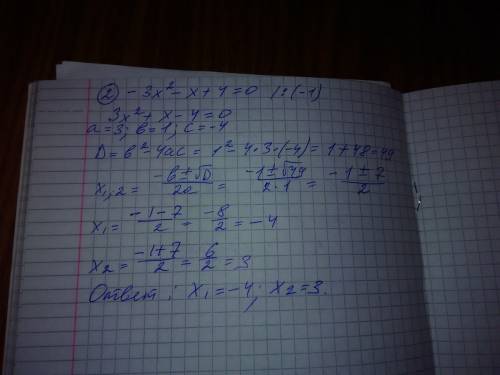 ② -3x² - x + 4 = 0 |:(-1)
3x² + x - 4 = 0
a = 3; b = 1; c = -4
D = b² - 4ac = 1² - 4·3·(-4) = 1 + 48 = 49
x₁,₂ = (-b ± √D)/2a = (-1 ± √49)/(2·1) = (-1 ± 7)/2
x₁ = (-1 - 7)/2 = -8/2 = -4
x₂ = (-1 + 7)/2 = 6/2 = 3
Ответ: x₁ = -4; x₂ = 3.